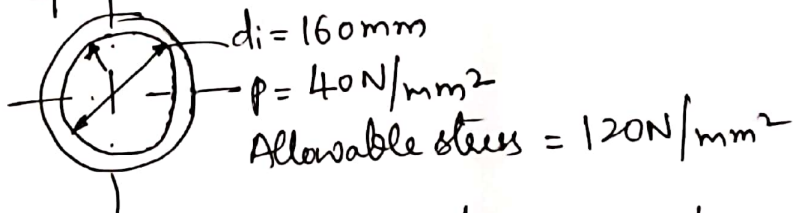 di = 160mm
p = 40N/mm²
Allowable stress = 120N/mm²